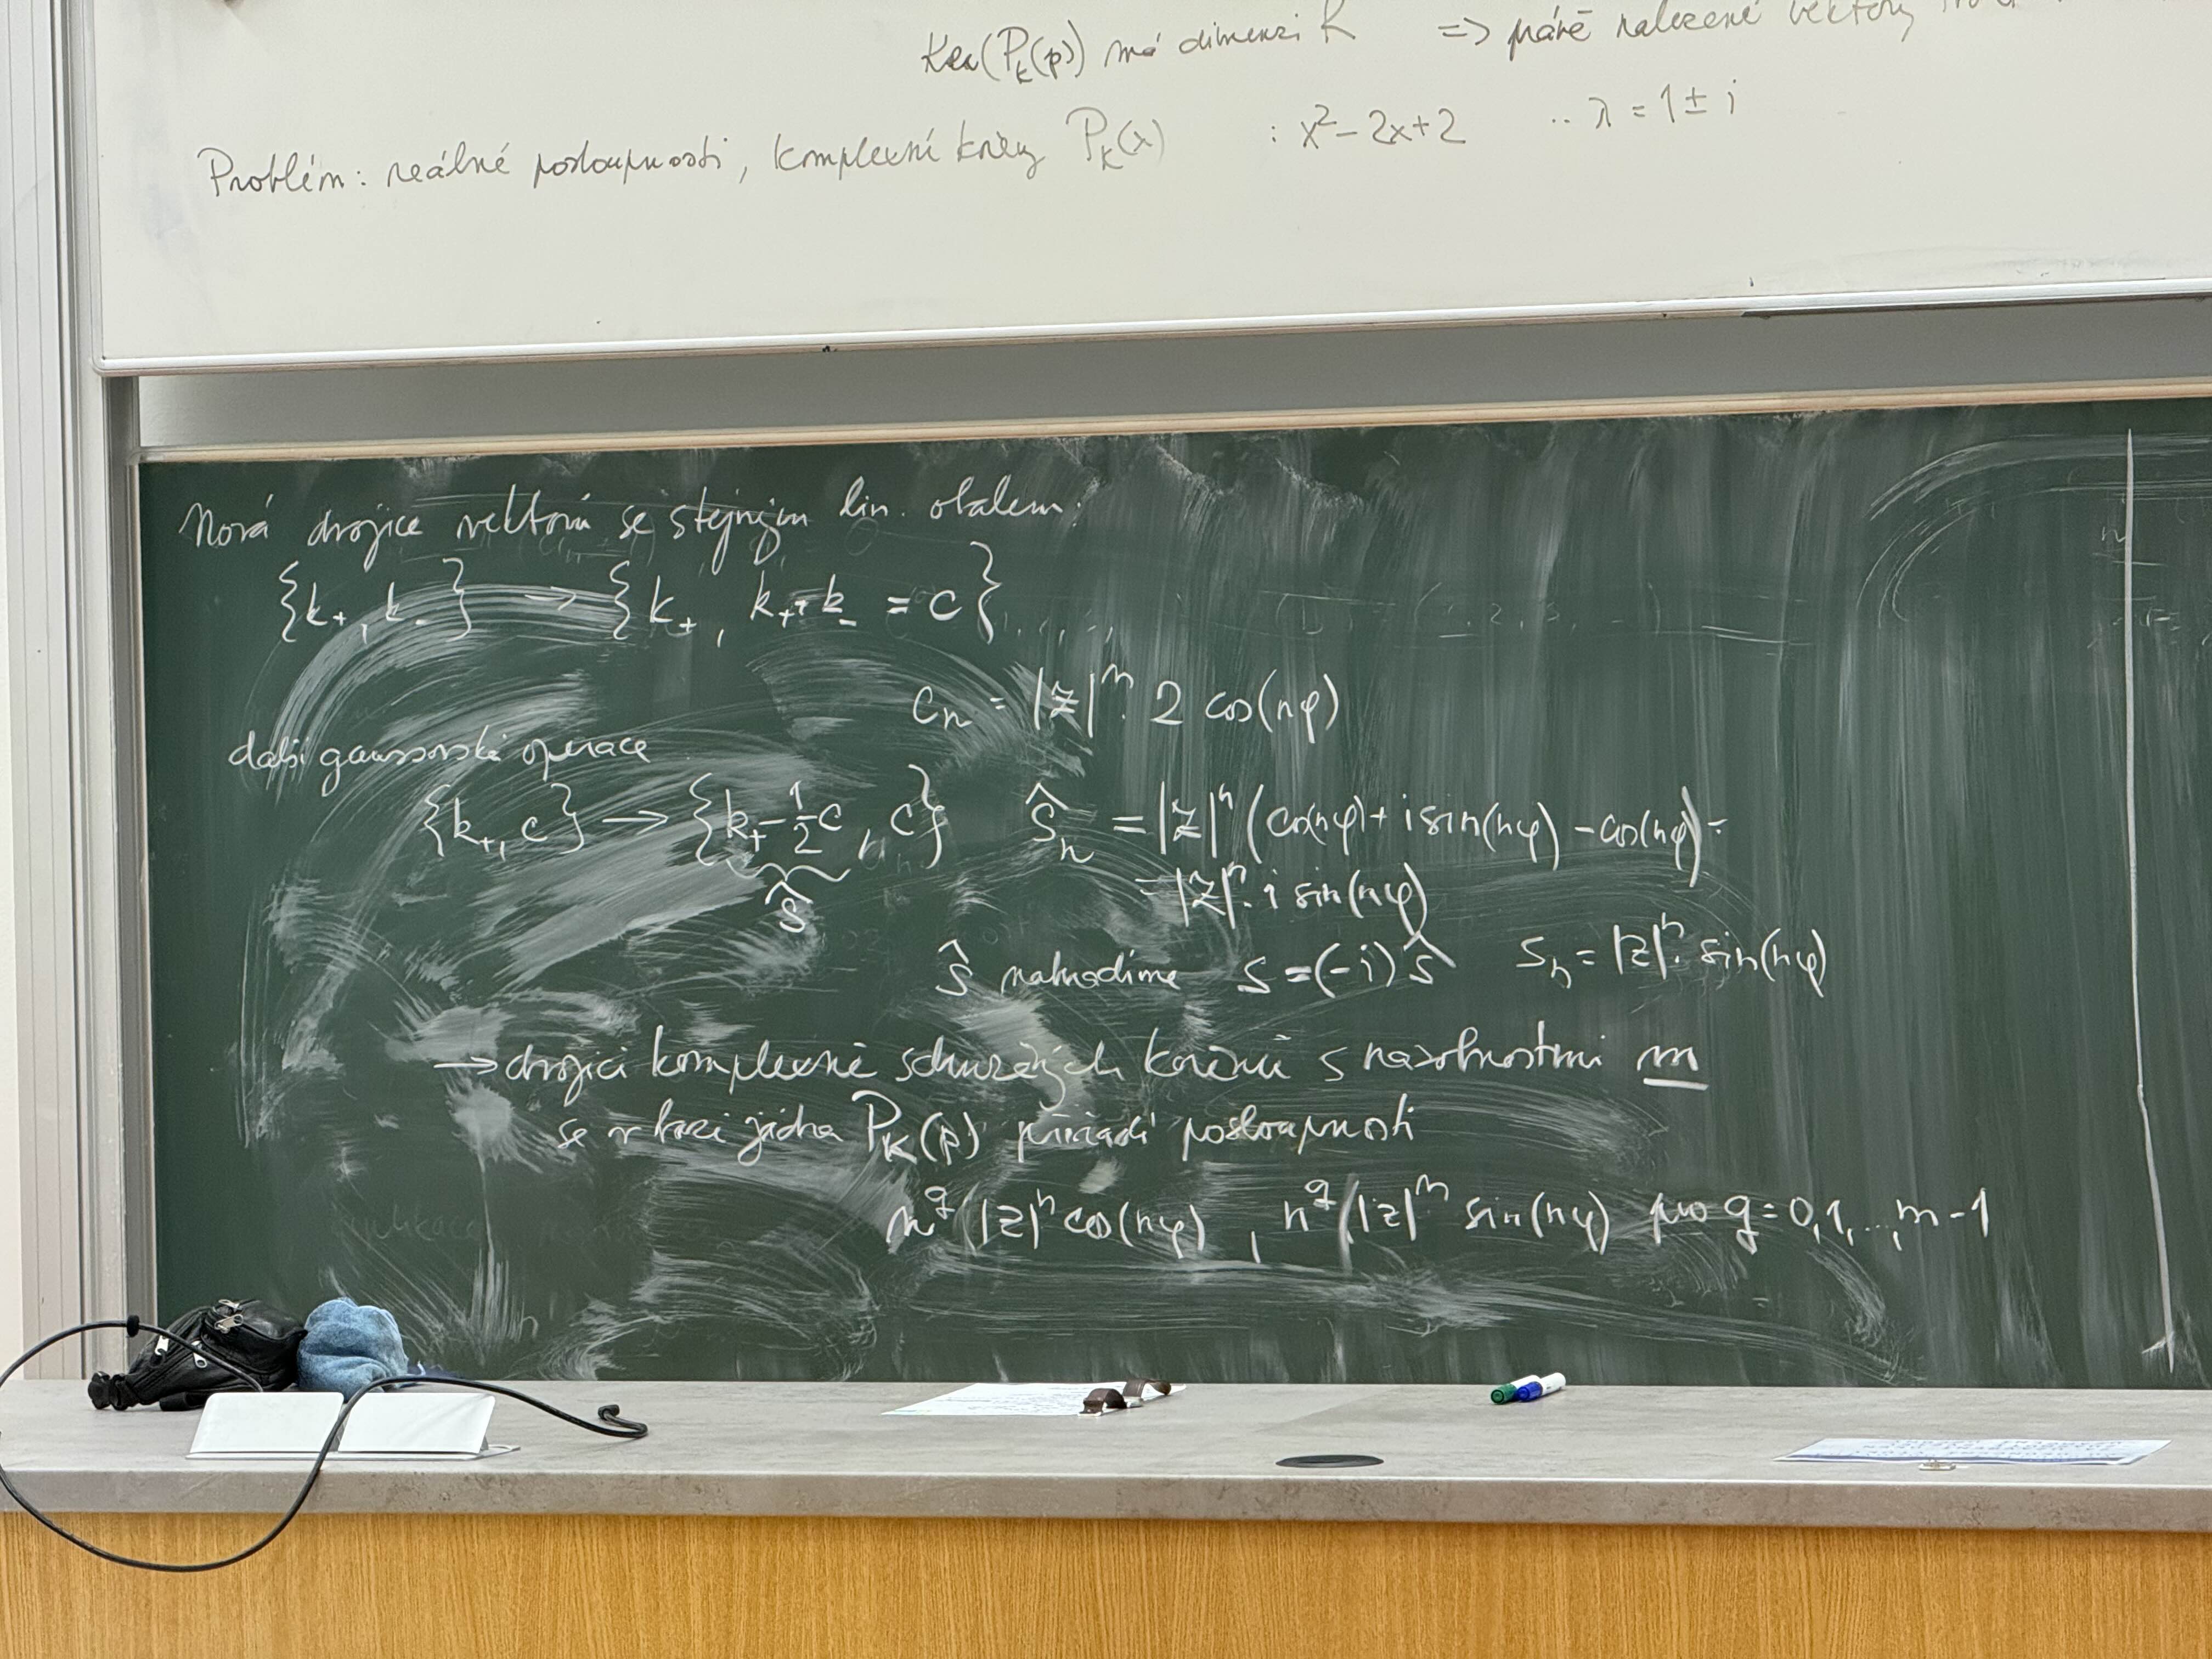 Ker(P_k(p)) má dimenzi k => právě nalezené vektory
Problém: reálné posloupnosti, komplexní kořeny P_k(λ) : x² - 2x + 2 .. λ = 1 ± i
Nová dvojice vektorů se stejným lin. obalem:
{k₊, k₋} → {k₊, k₊ + k₋ = c}
c_n = |z|ⁿ · 2 cos(nφ)
další gaussovská operace
{k₊, c} → {k₊ - ½c, c} ŝ_n = |z|ⁿ (cos(nφ) + i sin(nφ) - cos(nφ)) =
ŝ = |z|ⁿ · i sin(nφ)
ŝ nahradíme s = (-i) ŝ s_n = |z|ⁿ · sin(nφ)
→ dvojici komplexně sdružených kořenů s násobnostmi m
se v bázi jádra P_k(p) přiřadí posloupnosti
n^q |z|ⁿ cos(nφ), n^q |z|ⁿ sin(nφ) pro q = 0, 1, ..., m - 1